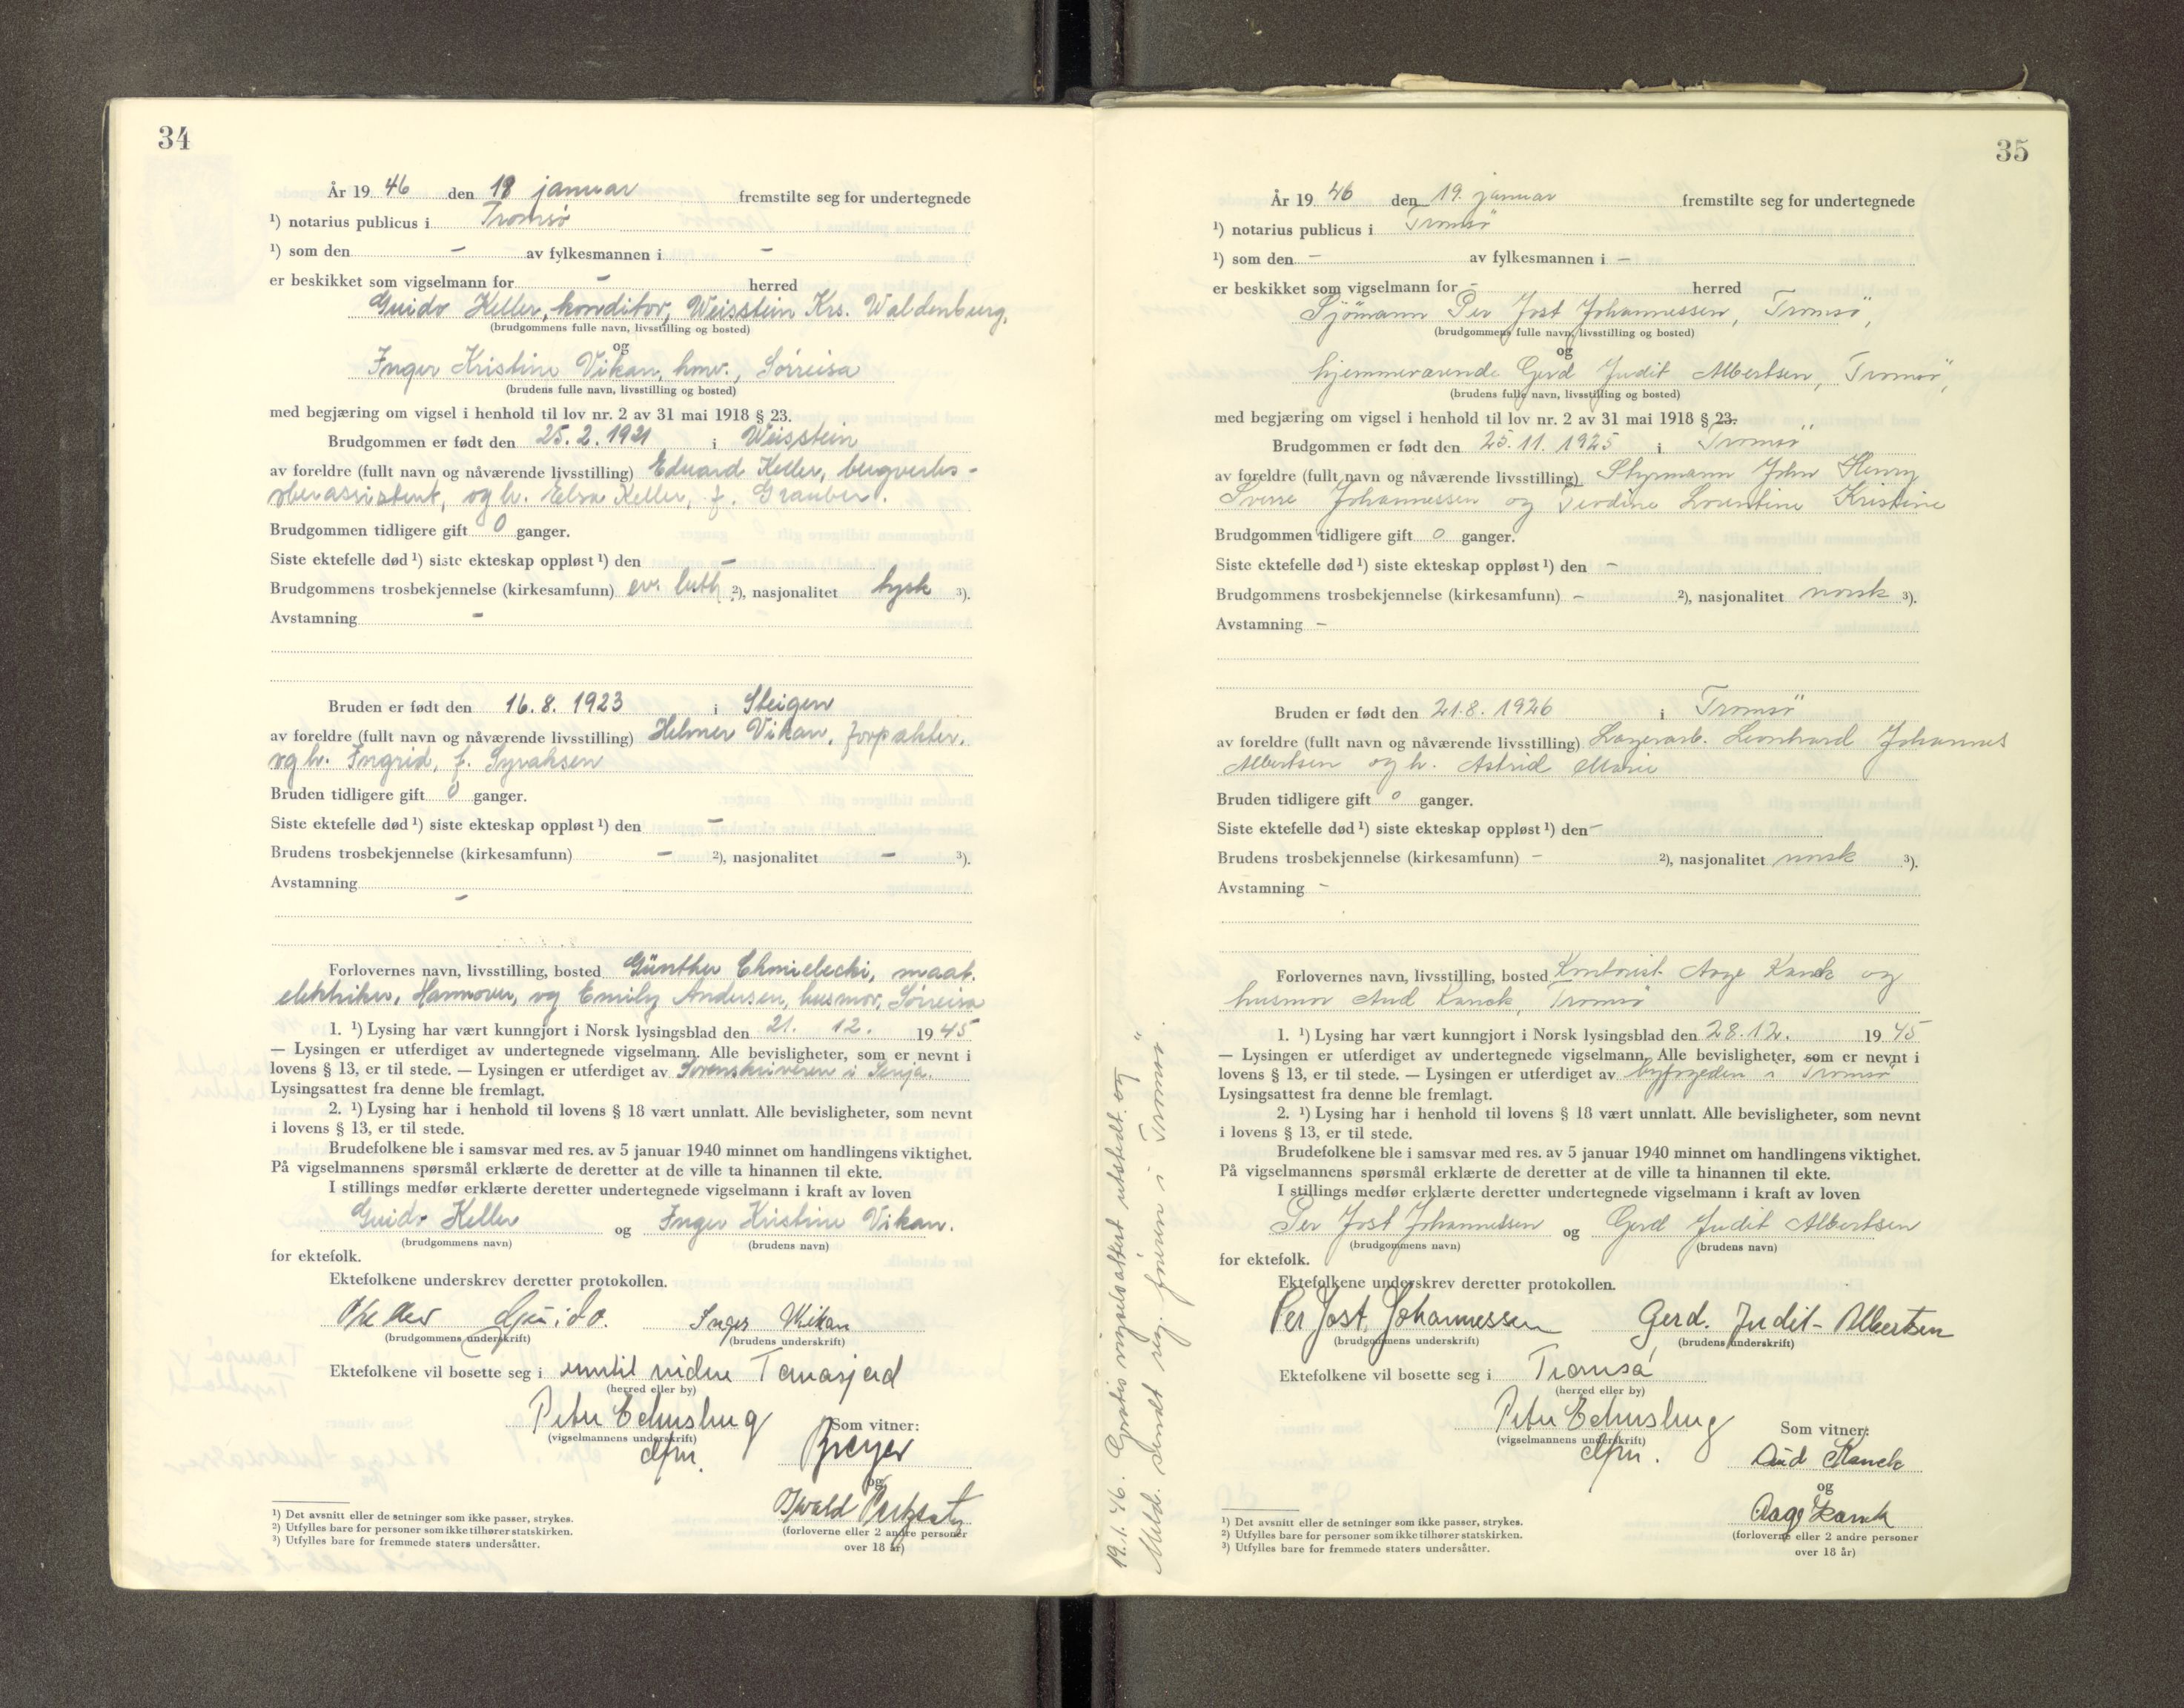 34
År 19 46 den 18 januar fremstilte seg for undertegnede
¹) notarius publicus i Tromsø
¹) som den – av fylkesmannen i –
er beskikket som vigselmann for – herred
Guido Keller, konditor, Weisstein Krs. Waldenburg,
(brudgommens fulle navn, livsstilling og bosted)
og
Inger Kristine Vikan, hmv., Sörreisa
(brudens fulle navn, livsstilling og bosted)
med begjæring om vigsel i henhold til lov nr. 2 av 31 mai 1918 § 23.
Brudgommen er født den 25. 2. 1921 i Weisstein
av foreldre (fullt navn og nåværende livsstilling) Eduard Keller, bergverks-
oberassistent, og h. Elsa Keller, f. Grauber.
Brudgommen tidligere gift 0 ganger.
Siste ektefelle død ¹) siste ekteskap oppløst ¹) den –
Brudgommens trosbekjennelse (kirkesamfunn) ev. luth ²), nasjonalitet tysk ³).
Avstamning –
Bruden er født den 16. 8. 1923 i Steigen
av foreldre (fullt navn og nåværende livsstilling) Helmer Vikan, forpakter,
og h. Ingrid, f. Syraksen
Bruden tidligere gift 0 ganger.
Siste ektefelle død ¹) siste ekteskap oppløst ¹) den –
Brudens trosbekjennelse (kirkesamfunn) – ²), nasjonalitet – ³).
Avstamning –
Forlovernes navn, livsstilling, bosted Günther Chmielecki, maat.
elektriker, Hannover, og Emily Andersen, husmor, Sörreisa
1. ¹) Lysing har vært kunngjort i Norsk lysingsblad den 21. 12. 19 45
— Lysingen er utferdiget av undertegnede vigselmann. Alle bevisligheter, som er nevnt i
lovens § 13, er til stede. — Lysingen er utferdiget av Sorenskriveren i Senja.
Lysingsattest fra denne ble fremlagt.
2. ¹) Lysing har i henhold til lovens § 18 vært unnlatt. Alle bevisligheter, som nevnt
i lovens § 13, er til stede.
Brudefolkene ble i samsvar med res. av 5 januar 1940 minnet om handlingens viktighet.
På vigselmannens spørsmål erklærte de deretter at de ville ta hinannen til ekte.
I stillings medfør erklærte deretter undertegnede vigselmann i kraft av loven
Guido Keller og Inger Kristine Vikan.
(brudgommens navn) (brudens navn)
for ektefolk.
Ektefolkene underskrev deretter protokollen.
Keller Guido. Inger Vikan
(brudgommens underskrift) (brudens underskrift)
Ektefolkene vil bosette seg i inntil videre
(herred eller by)
(vigselmannens underskrift) Som vitner:
og
(forloverne eller 2 andre personer
over 18 år)
¹) Det avsnitt eller de setninger som ikke passer, strykes.
²) Utfylles bare for personer som ikke tilhører statskirken.
³) Utfylles bare for fremmede staters undersåtter.
35
År 19 46 den 19. januar fremstilte seg for undertegnede
¹) notarius publicus i Tromsö
¹) som den – av fylkesmannen i –
er beskikket som vigselmann for – herred
Sjömann Per Jost Johannessen, Tromsö,
(brudgommens fulle navn, livsstilling og bosted)
og
hjemmeværende Gerd Judit Albertsen, Tromsö,
(brudens fulle navn, livsstilling og bosted)
med begjæring om vigsel i henhold til lov nr. 2 av 31 mai 1918 § 23.
Brudgommen er født den 25. 11. 1925 i Tromsö
av foreldre (fullt navn og nåværende livsstilling) Styrmann John Henry
Sverre Johannessen og Teodine Lorentine Kristine
Brudgommen tidligere gift 0 ganger.
Siste ektefelle død ¹) siste ekteskap oppløst ¹) den –
Brudgommens trosbekjennelse (kirkesamfunn) – ²), nasjonalitet norsk ³).
Avstamning –
Bruden er født den 21. 8. 1926 i Tromsö
av foreldre (fullt navn og nåværende livsstilling) Lagerarb. Leonhard Johannes
Albertsen og h. Astrid Marie
Bruden tidligere gift 0 ganger.
Siste ektefelle død ¹) siste ekteskap oppløst ¹) den –
Brudens trosbekjennelse (kirkesamfunn) – ²), nasjonalitet norsk ³).
Avstamning –
Forlovernes navn, livsstilling, bosted Kontorist Aage Kanck og
husmor Aud Kanck, Tromsö
1. ¹) Lysing har vært kunngjort i Norsk lysingsblad den 28. 12. 19 45
— Lysingen er utferdiget av undertegnede vigselmann. Alle bevisligheter, som er nevnt i
lovens § 13, er til stede. — Lysingen er utferdiget av byfogden i Tromsö
Lysingsattest fra denne ble fremlagt.
2. ¹) Lysing har i henhold til lovens § 18 vært unnlatt. Alle bevisligheter, som nevnt
i lovens § 13, er til stede.
Brudefolkene ble i samsvar med res. av 5 januar 1940 minnet om handlingens viktighet.
På vigselmannens spørsmål erklærte de deretter at de ville ta hinannen til ekte.
I stillings medfør erklærte deretter undertegnede vigselmann i kraft av loven
Per Jost Johannessen og Gerd Judit Albertsen
(brudgommens navn) (brudens navn)
for ektefolk.
Ektefolkene underskrev deretter protokollen.
Per Jost Johannessen Gerd. Judit Albertsen
(brudgommens underskrift) (brudens underskrift)
Ektefolkene vil bosette seg i Tromsö
(herred eller by)
(vigselmannens underskrift) Som vitner:
Aud Kanck
og
Aage Kanck
(forloverne eller 2 andre personer
over 18 år)
¹) Det avsnitt eller de setninger som ikke passer, strykes.
²) Utfylles bare for personer som ikke tilhører statskirken.
³) Utfylles bare for fremmede staters undersåtter.
19.1.46. Gratis vigselsattest utstedt og
Meld. sendt reg. föreren i Tromsö.